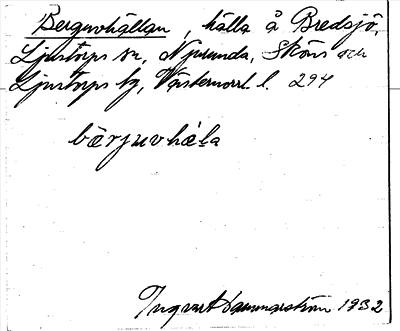 Berguvhällan, hälla å Bredsjö,
Ljustorps sn, Njurunda, Sköns och
Ljustorps tg, Västernorrl. l. 294
bærjuvhála
Ingvart Hammarström 1932